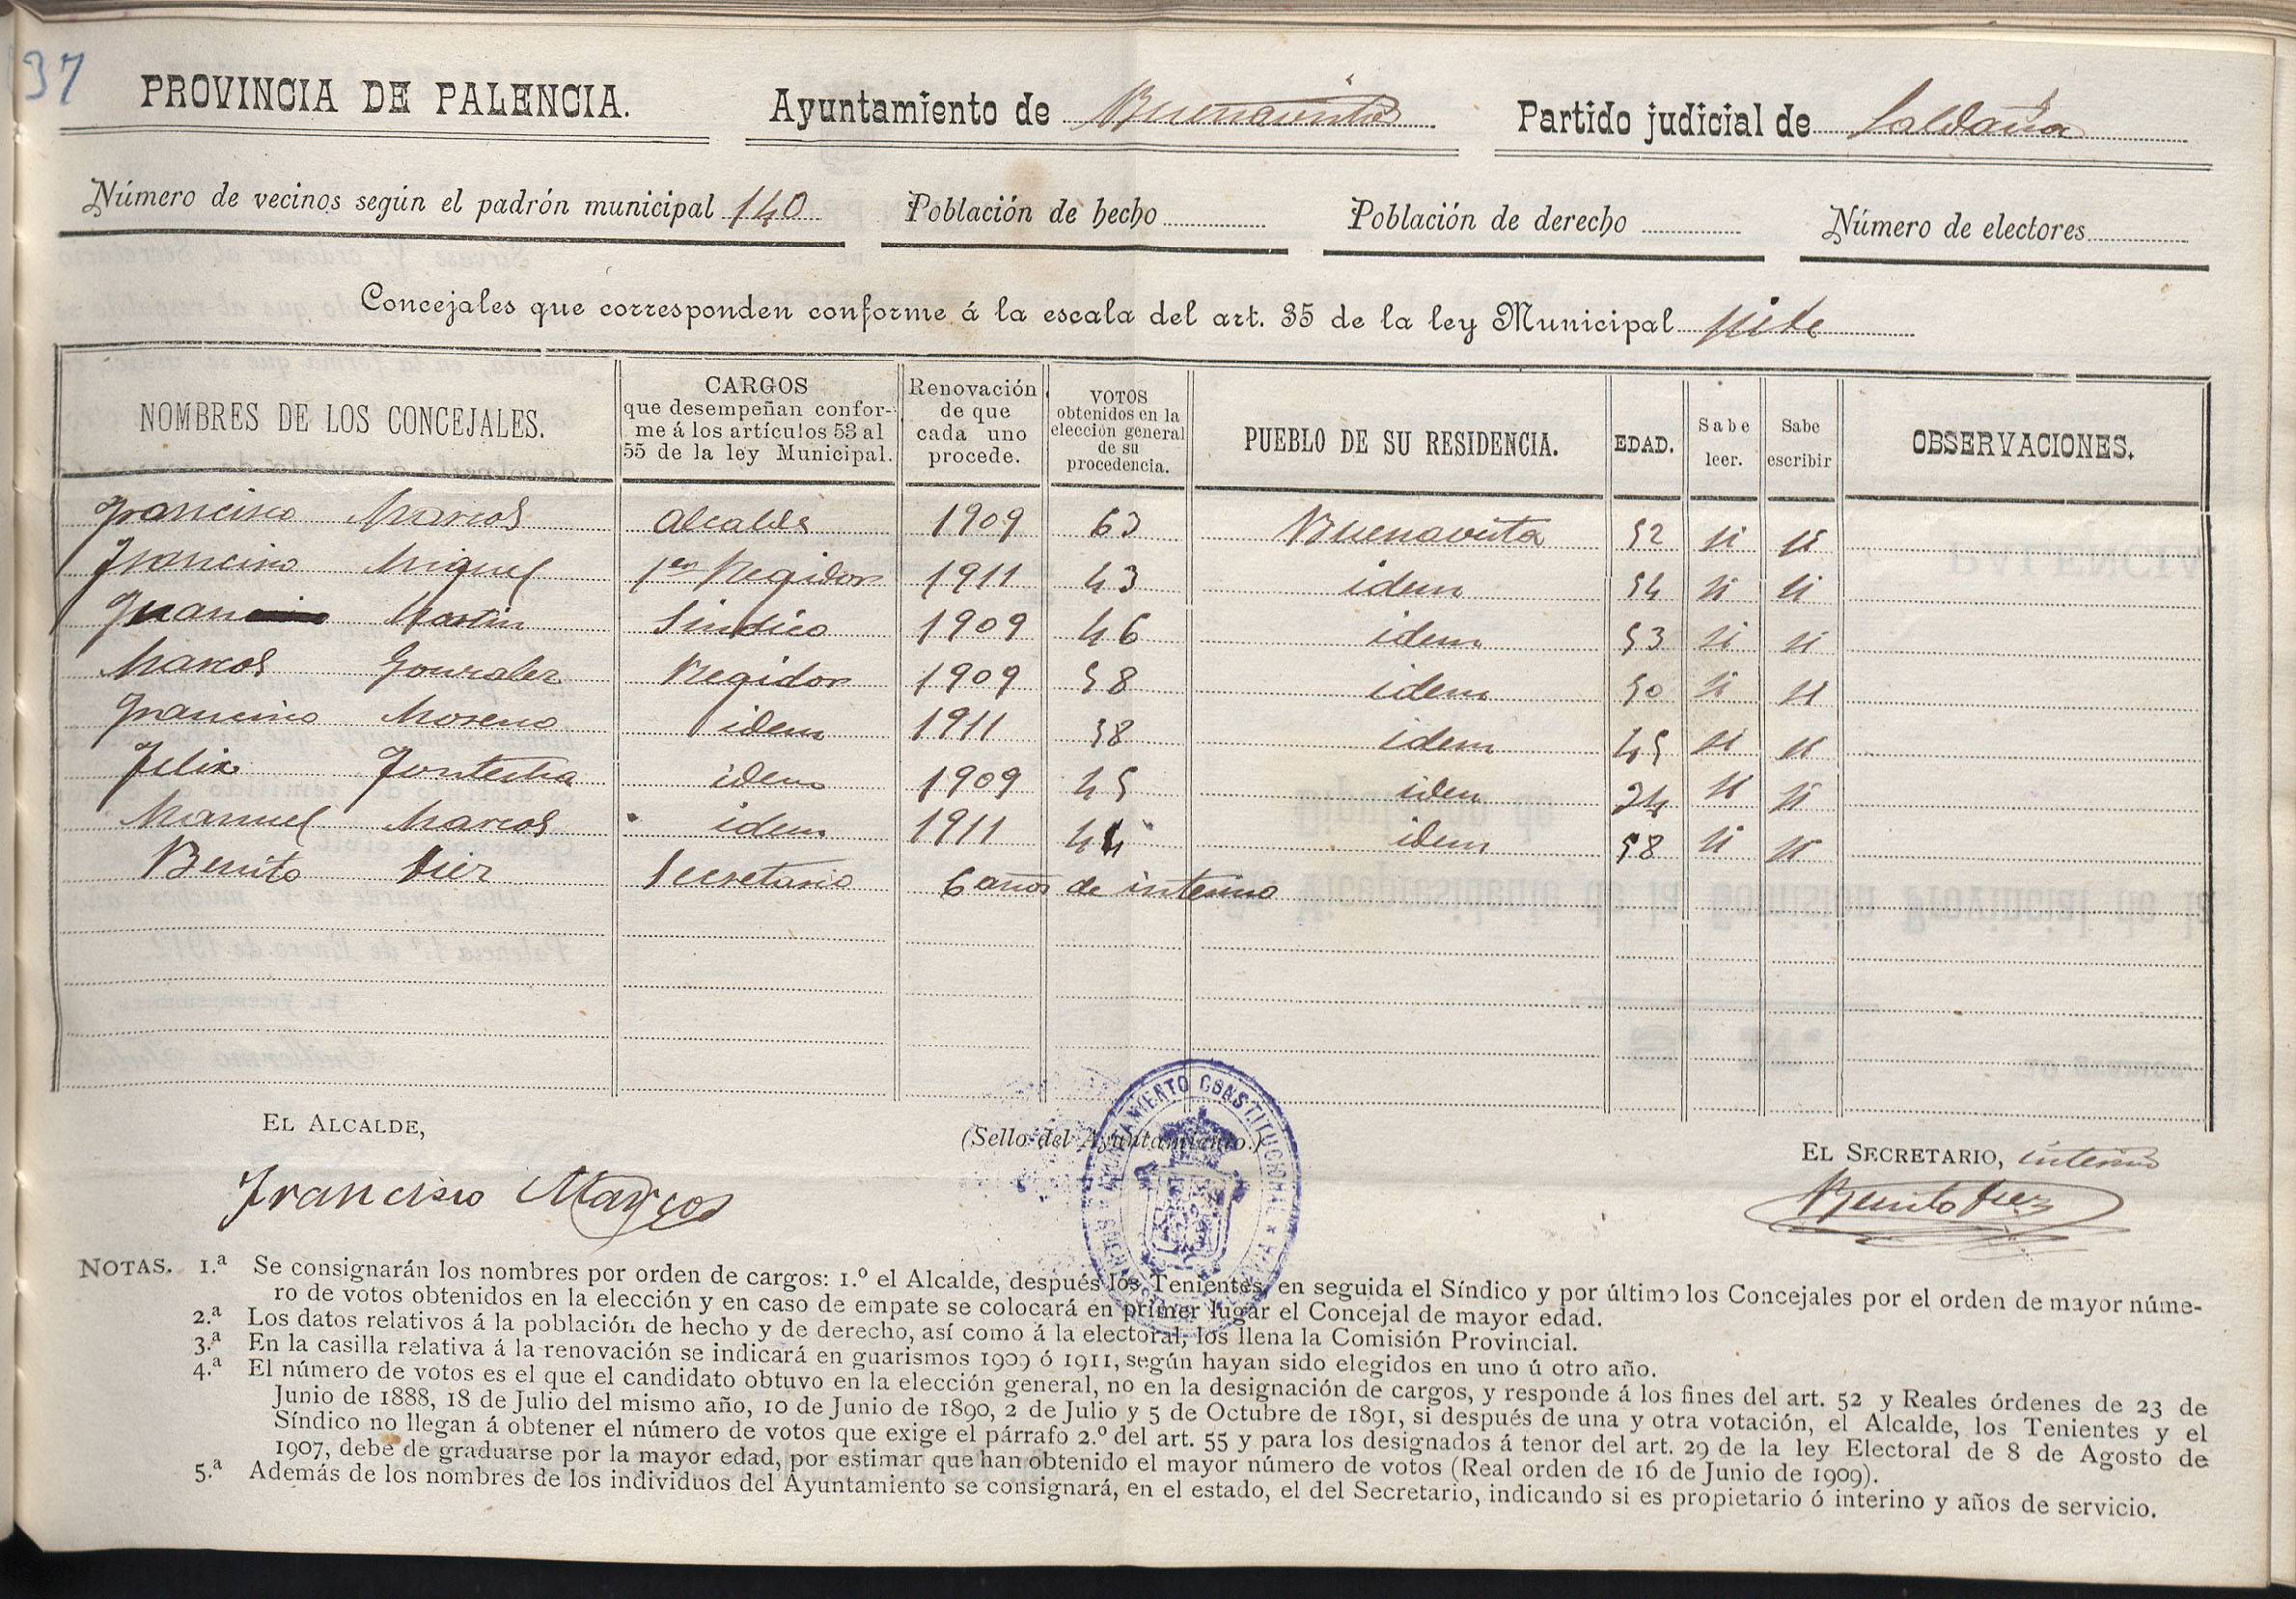 37
PROVINCIA DE PALENCIA. Ayuntamiento de Buenavista Partido judicial de Saldaña
Número de vecinos según el padrón municipal 140 Población de hecho Población de derecho Número de electores
Concejales que corresponden conforme á la escala del art. 35 de la ley Municipal siete
NOMBRES DE LOS CONCEJALES. CARGOS que desempeñan confor- me á los artículos 53 al 55 de la ley Municipal. Renovación de que cada uno procede. VOTOS obtenidos en la elección general de su procedencia. PUEBLO DE SU RESIDENCIA. EDAD. Sabe leer. Sabe escribir OBSERVACIONES.
Francisco Marcos Alcalde 1909 63 Buenavista 52 si si
Francisco Miguel 1er Regidor 1911 43 idem 54 si si
Juan Martin Sindico 1909 46 idem 53 si si
Marcos Gonzalez Regidor 1909 58 idem 50 si si
Francisco Moreno idem 1911 58 idem 45 si si
Felix Fontecha idem 1909 45 idem 34 si si
Manuel Marcos idem 1911 44 idem 58 si si
Benito Diez Secretario 6 años de interino
EL ALCALDE, (Sello del Ayuntamiento.) EL SECRETARIO, interino
Francisco Marcos Benito Diez
AYUNTAMIENTO CONSTITUCIONAL
NOTAS. 1.ª Se consignarán los nombres por orden de cargos: 1.º el Alcalde, después los Tenientes, en seguida el Síndico y por último los Concejales por el orden de mayor núme-
ro de votos obtenidos en la elección y en caso de empate se colocará en primer lugar el Concejal de mayor edad.
2.ª Los datos relativos á la población de hecho y de derecho, así como á la electoral, los llena la Comisión Provincial.
3.ª En la casilla relativa á la renovación se indicará en guarismos 1909 ó 1911, según hayan sido elegidos en uno ú otro año.
4.ª El número de votos es el que el candidato obtuvo en la elección general, no en la designación de cargos, y responde á los fines del art. 52 y Reales órdenes de 23 de
Junio de 1888, 18 de Julio del mismo año, 10 de Junio de 1890, 2 de Julio y 5 de Octubre de 1891, si después de una y otra votación, el Alcalde, los Tenientes y el
Síndico no llegan á obtener el número de votos que exige el párrafo 2.º del art. 55 y para los designados á tenor del art. 29 de la ley Electoral de 8 de Agosto de
1907, debe de graduarse por la mayor edad, por estimar que han obtenido el mayor número de votos (Real orden de 16 de Junio de 1909).
5.ª Además de los nombres de los individuos del Ayuntamiento se consignará, en el estado, el del Secretario, indicando si es propietario ó interino y años de servicio.